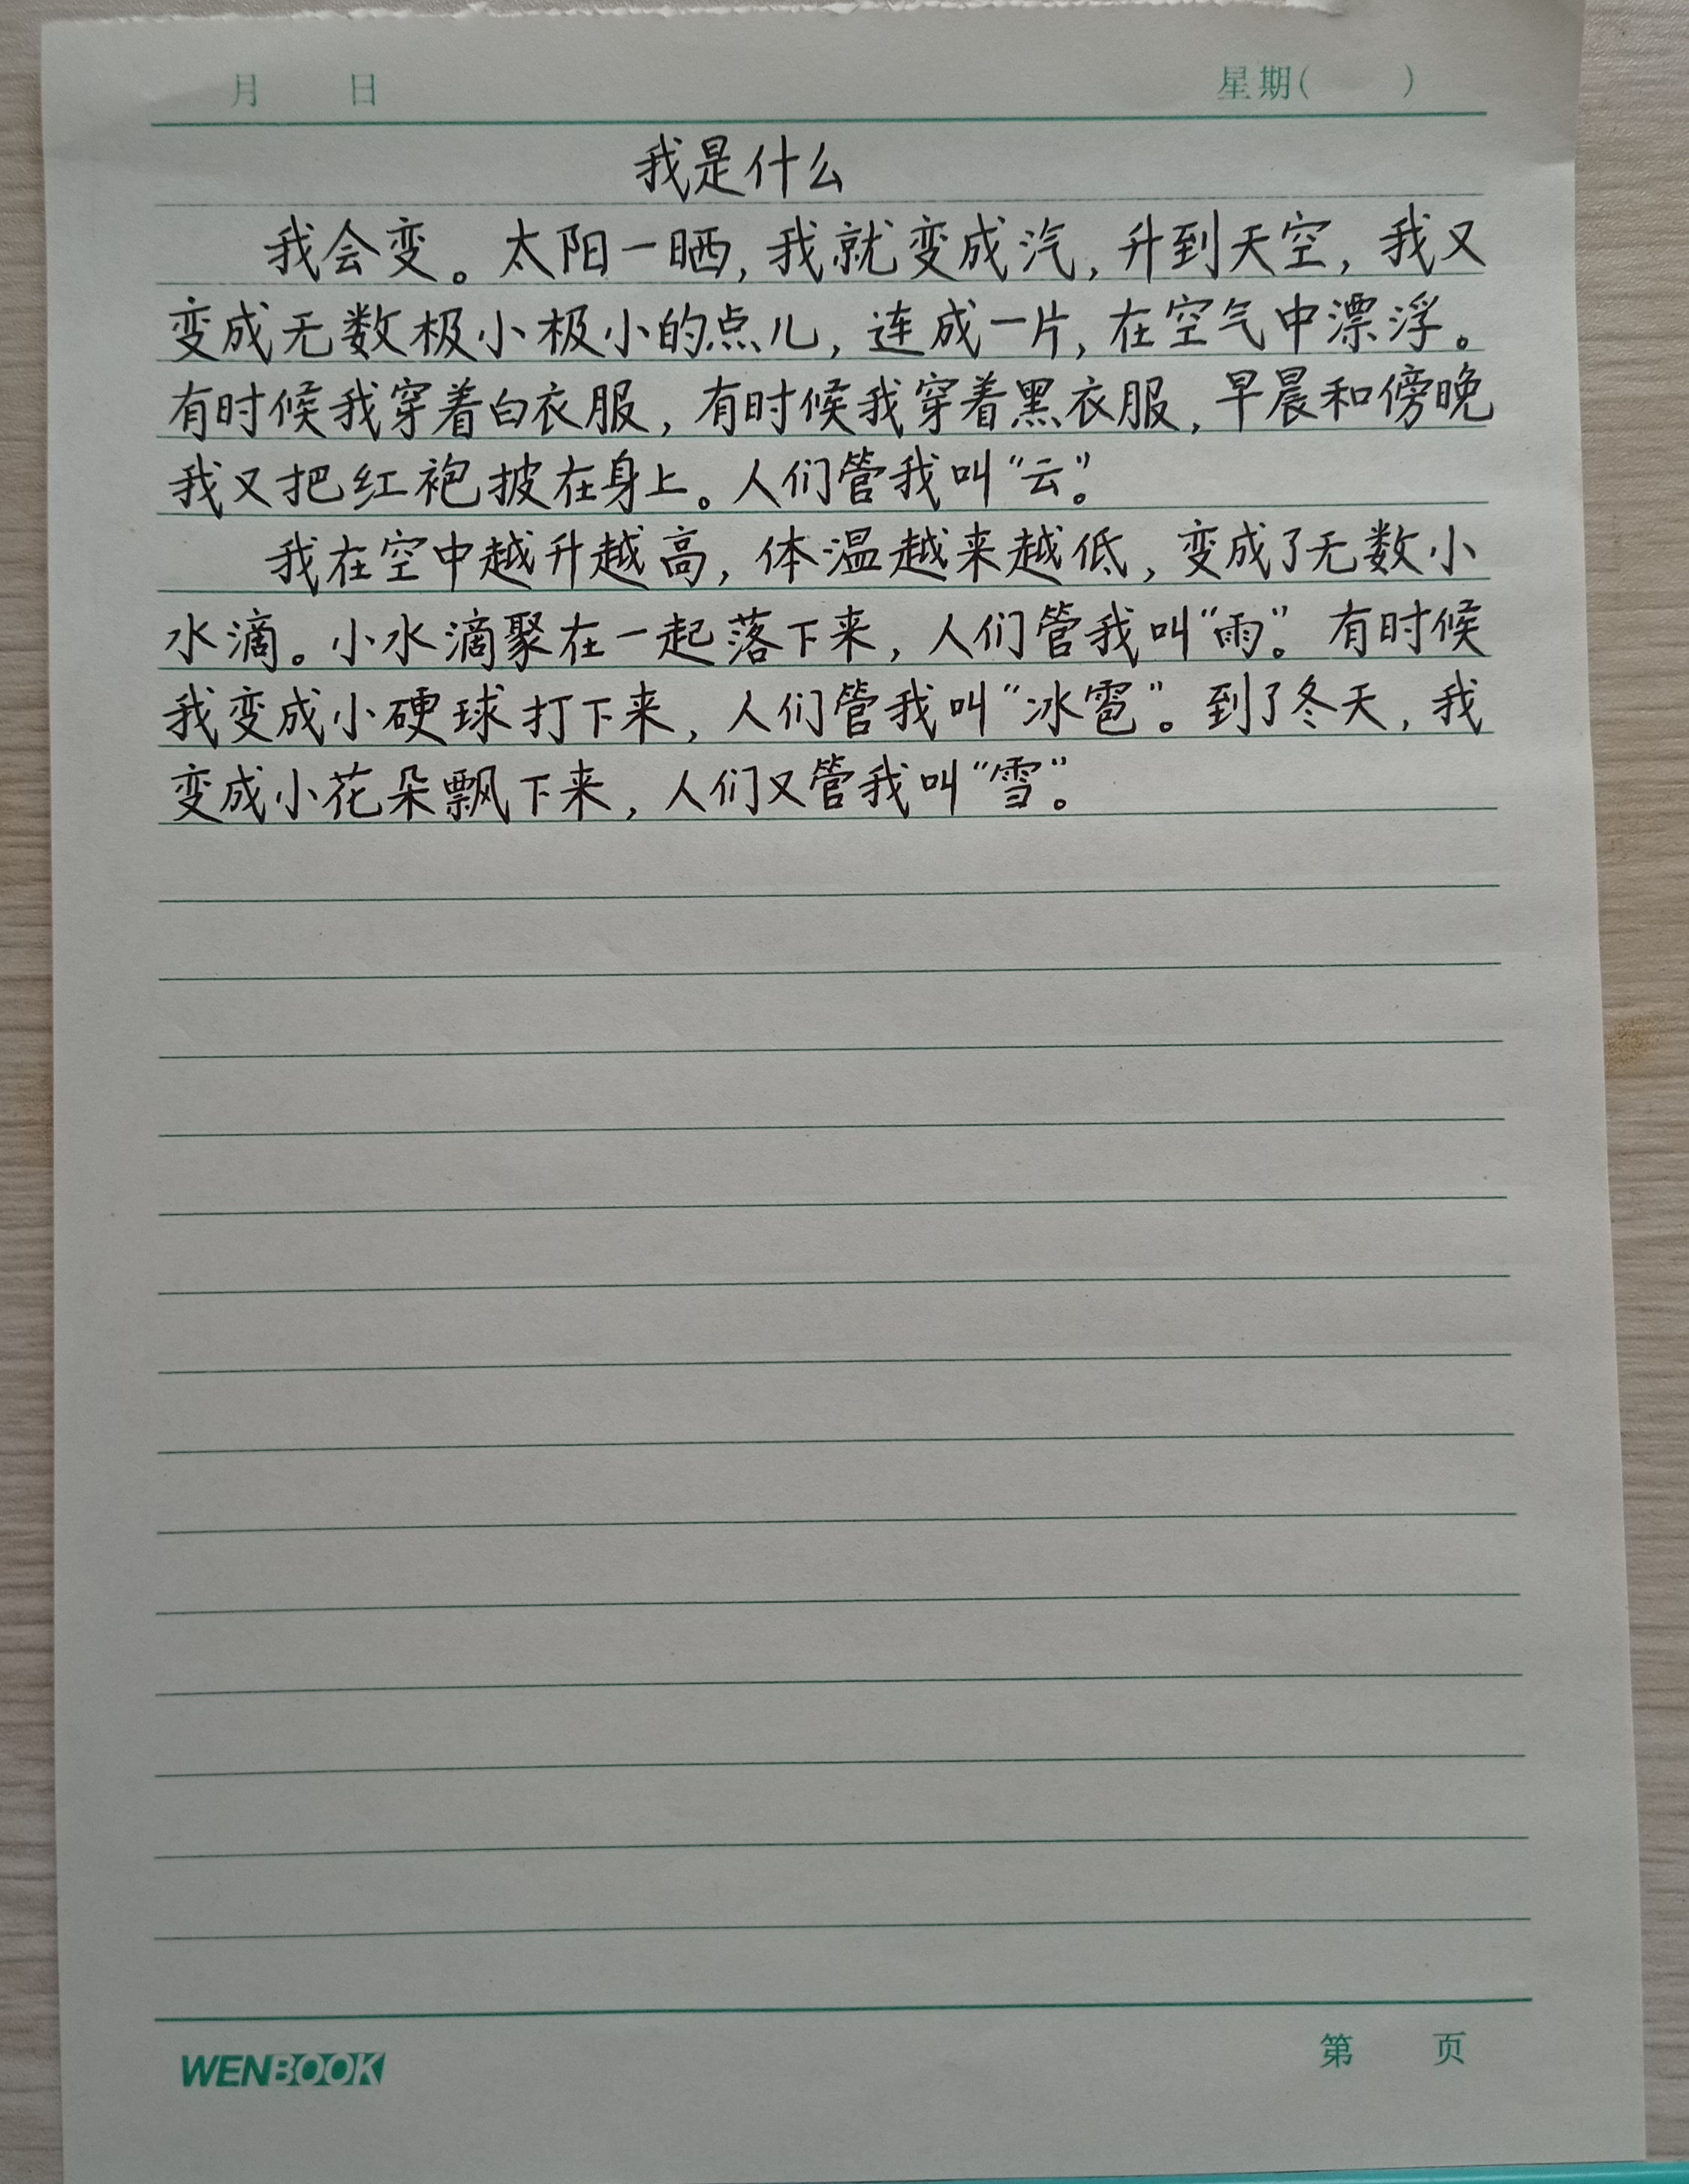 月 日 星期( )
我是什么
我会变。太阳一晒,我就变成汽,升到天空,我又
变成无数极小极小的点儿,连成一片,在空气中漂浮。
有时候我穿着白衣服,有时候我穿着黑衣服,早晨和傍晚
我又把红袍披在身上。人们管我叫“云”。
我在空中越升越高,体温越来越低,变成了无数小
水滴。小水滴聚在一起落下来,人们管我叫“雨”。有时候
我变成小硬球打下来,人们管我叫“冰雹”。到了冬天,我
变成小花朵飘下来,人们又管我叫“雪”。
WENBOOK 第 页